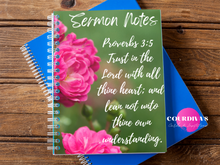 Sermon Notes
Proverbs 3:5
Trust in the
Lord with all
thine heart; and
lean not unto
thine own
understanding.
COURDIVA'S